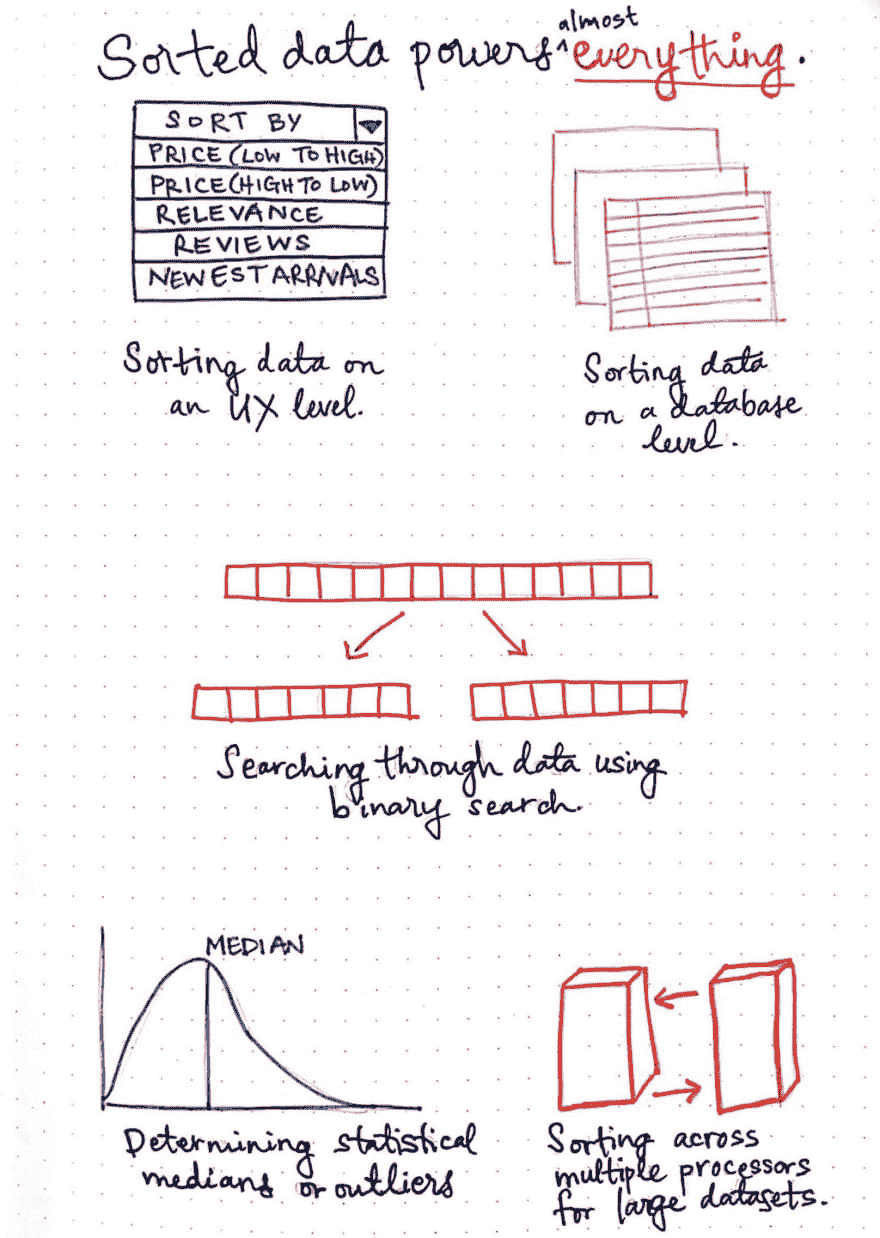 Sorted data powers ^almost everything.
SORT BY
PRICE (LOW TO HIGH)
PRICE (HIGH TO LOW)
RELEVANCE
REVIEWS
NEWEST ARRIVALS
Sorting data on
an UX level.
Sorting data
on a database
level.
Searching through data using
binary search.
MEDIAN
Determining statistical
medians or outliers
Sorting across
multiple processors
for large datasets.